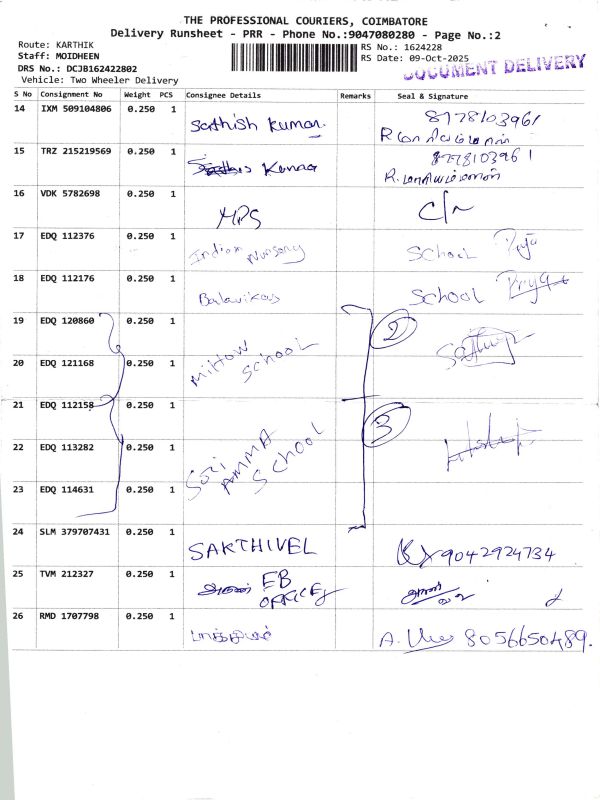 THE PROFESSIONAL COURIERS, COIMBATORE
Delivery Runsheet - PRR - Phone No.:9047080280 - Page No.:2
Route: KARTHIK
Staff: MOIDHEEN
DRS No.: DCJB162422802
Vehicle: Two Wheeler Delivery
RS No.: 1624228
RS Date: 09-Oct-2025
DOCUMENT DELIVERY
S No Consignment No Weight PCS Consignee Details Remarks Seal & Signature
14 IXM 509104806 0.250 1 Sathish Kumar 8778103961
15 TRZ 215219569 0.250 1 Kumar 8778103961
16 VDK 5782698 0.250 1 MPS
17 EDQ 112376 0.250 1 Indian Nursery School
18 EDQ 112176 0.250 1 Balavikas School Priya
19 EDQ 120860 0.250 1 2
20 EDQ 121168 0.250 1 School
21 EDQ 112158 0.250 1 3
22 EDQ 113282 0.250 1 AMMA School
23 EDQ 114631 0.250 1
24 SLM 379707431 0.250 1 SAKTHIVEL 9042924734
25 TVM 212327 0.250 1 EB OFFICE
26 RMD 1707798 0.250 1 8056650489.